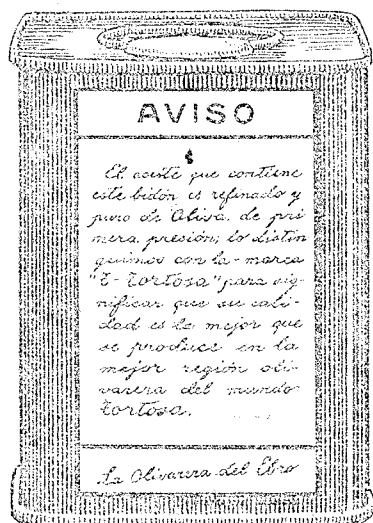 AVISO
El aceite que contiene
este bidón es refinado y
puro de Oliva de pri
mera presión; lo distin
guimos con la marca
"E-Tortosa" para sig-
nificar que su cali-
dad es la mejor que
se produce en la
mejor región oli-
varera del mundo
Tortosa.
La Olivarera del Ebro